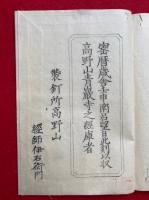 宝暦歳舍壬申南呂望日此刻以収
高野山青巌寺之經庫者
製釘所高野山
經師伊右衛門